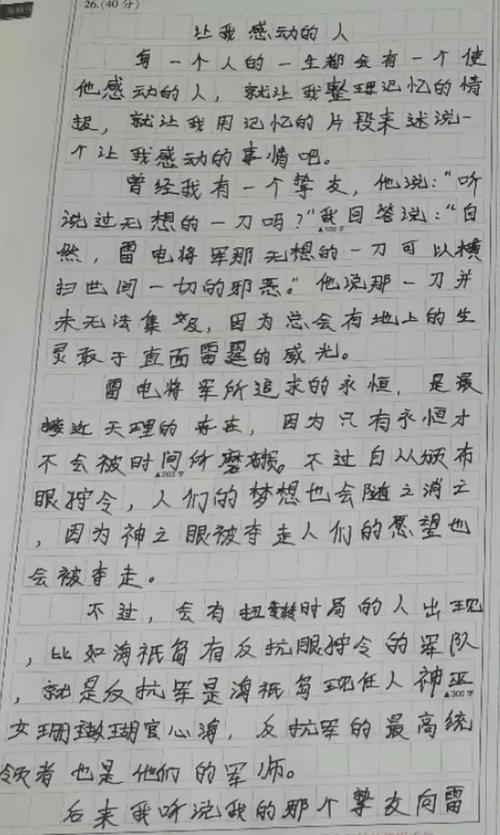 26.(40分)
让我感动的人
每一个人的一生都会有一个使
他感动的人，就让我整理记忆的情
起，就让我用记忆的片段来述说一
个让我感动的事情吧。
曾经我有一个挚友，他说：“听
说过无想的一刀吗？”我回答说：“自
▲100字
然，雷电将军那无想的一刀可以横
扫世间一切的邪恶。”他说那一刀并
未无法集及，因为总会有地上的生
灵敢于直面雷霆的威光。
雷电将军所追求的永恒，是最
接近天理的存在，因为只有永恒才
不会被时间所磨损。不过自从颁布
▲200字
眼狩令，人们的梦想也会随之消亡
，因为神之眼被夺走人们的愿望也
会被夺走。
不过，会有扭转时局的人出现
，比如海祇岛有反抗眼狩令的军队
，就是反抗军是海祇岛现任人神巫
▲300字
女珊瑚宫心海，反抗军的最高统
领者也是他们的军师。
后来我听说我的那个挚友向雷